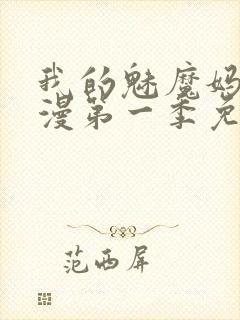 我的魅魔妈
漫第一季免
范西屏